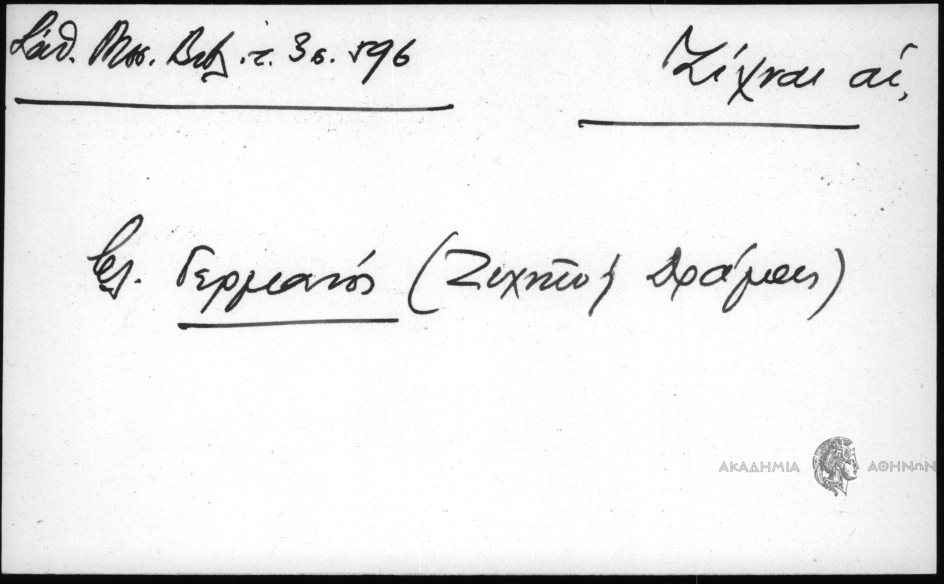 Σάθ. Μεσ. Βιβ. τ. 3 σ. 596
Ζίχναι αἱ,
Γερμανός (Ζιχνῶν ἢ Δράμας)
ΑΚΑΔΗΜΙΑ ΑΘΗΝΩΝ